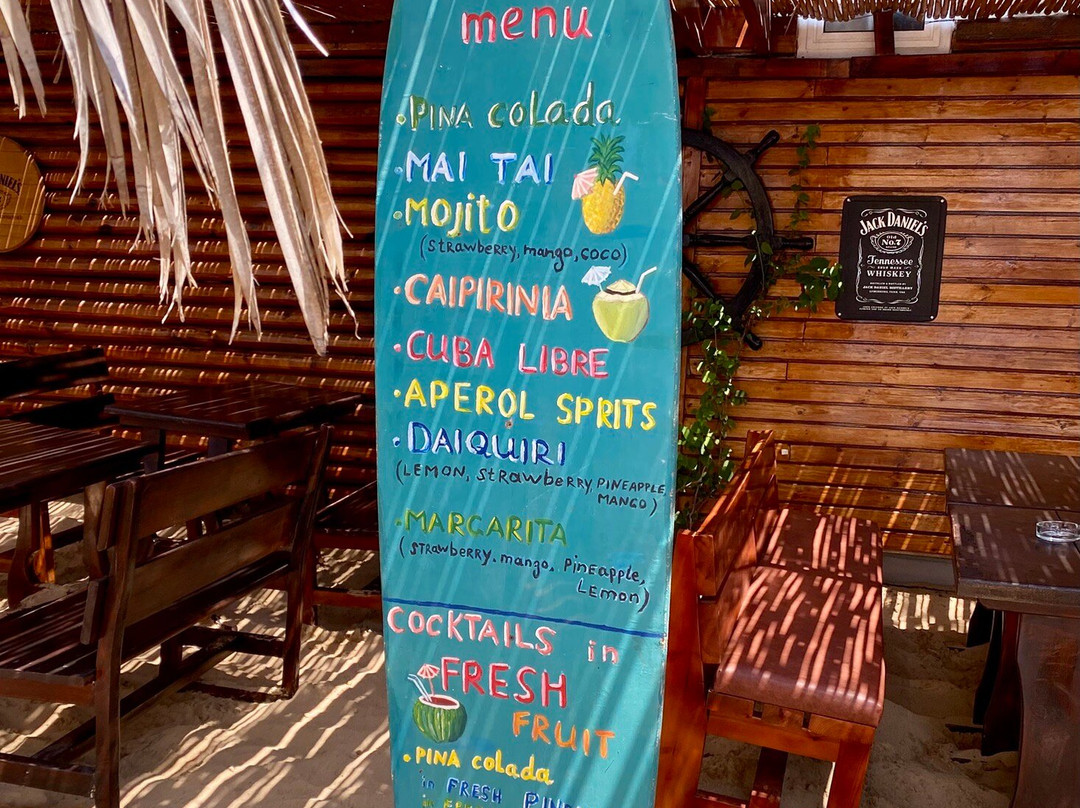 menu
• PINA colada
• MAI TAI
• MOJITO
(strawberry, mango, coco)
• CAIPIRINIA
• CUBA LIBRE
• APEROL SPRITS
• DAIQUIRI
(LEMON, strawberry, PINEAPPLE,
MANGO)
• MARGARITA
(strawberry. mango. Pineapple,
Lemon)
COCKTAILS in
FRESH
FRUIT
• PINA colada
in FRESH
JACK DANIEL'S
OLD
No.7
BRAND
Tennessee
SOUR MASH
WHISKEY
JACK DANIEL DISTILLERY